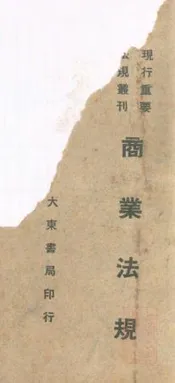 現行重要
規叢刊
商業法規
大東書局印行